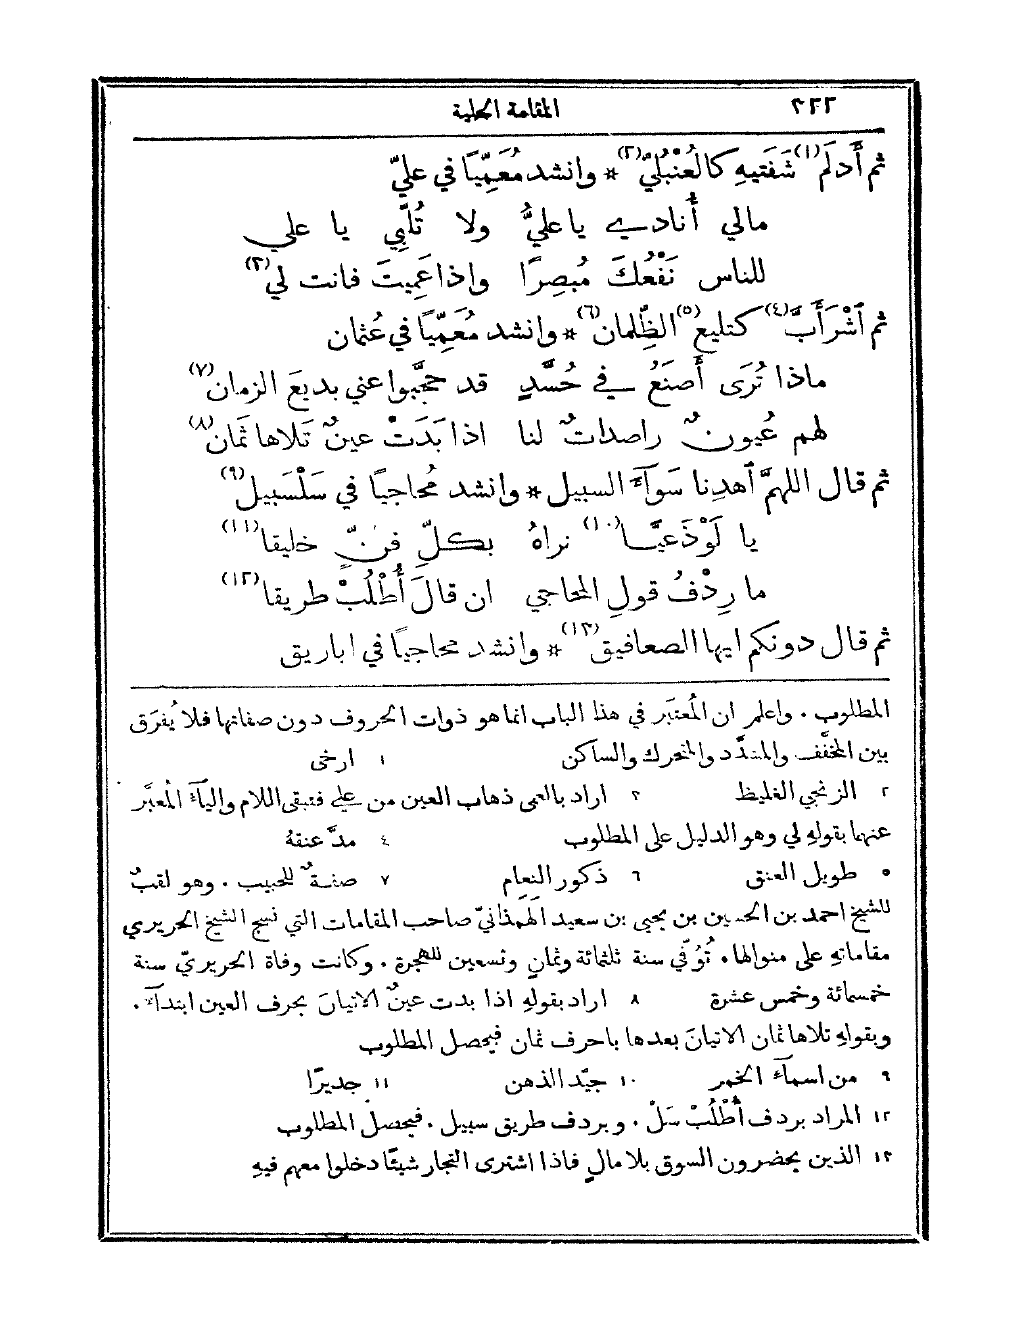 ٢٢٢ المقامة الحلبية
ثم أَدلَمَ(١) شَفَتيهِ كالعُنْبُليِّ(٢) * وانشد مُعَمِّيًا في عليّ
مالي أُناديك ياعليُّ ولا تُلَبِّي يا علي
للناس نَفْعُكَ مُبصِرًا واذا عَمِيتَ فانت لي(٣)
ثم ٱشْرَأَبَّ(٤) كتليع(٥) الظِّلمان(٦) * وانشد مُعَمِّيًا في عُثمان
ماذا تُرَى أَصنَعُ في حُسَّدٍ قد حجَّبوا عني بديعَ الزمان(٧)
لهم عُيونٌ راصداتٌ لنا اذا بَدَتْ عينٌ تَلاها ثَمان(٨)
ثم قال اللهمَّ ٱهدِنا سَوآءَ السبيل * وانشد مُحاجيًا في سَلْسَبيل(٩)
يا لَوْذَعيًّا(١٠) نراهُ بكلِّ فنٍّ خليقا(١١)
ما رِدْفُ قولِ المحاجي ان قالَ أُطْلُبْ طريقا(١٢)
ثم قال دونكم ايها الصعافيق(١٣) * وانشد محاجيًا في اباريق
المطلوب . واعلم ان المُعتبَر في هذا الباب انما هو ذوات الحروف دون صفاتها فلا يُفرَق
بين المخفَّف والمشدَّد والمتحرك والساكن ١ ارخى
٢ الزنجي الغليظ ٣ اراد بالعمى ذهاب العين من علي فتبقى اللام واليآءُ المُعبَّر
عنهما بقولهِ لي وهو الدليل على المطلوب ٤ مدَّ عنقهُ
٥ طويل العنق ٦ ذكور النعام ٧ صفةٌ للحبيب . وهو لقبٌ
للشيخ احمد بن الحسين بن يحيى بن سعيد الهمذانيّ صاحب المقامات التي نسج الشيخ الحريري
مقاماتهِ على منوالها . تُوُفّي سنة ثلثمائة وثمانٍ وتسعين للهجرة . وكانت وفاة الحريريّ سنة
خمسمائة وخمس عشرة ٨ اراد بقولهِ اذا بدت عينٌ الاتيانَ بحرف العين ابتدآءً .
وبقولهِ تلاها ثمان الاتيانَ بعدها باحرف ثمان فيحصل المطلوب
٩ من اسمآء الخمر ١٠ جيّد الذهن ١١ جديرًا
١٢ المراد بردف أُطْلُبْ سَلْ . وبردف طريق سبيل . فيحصل المطلوب
١٣ الذين يحضرون السوق بلا مالٍ فاذا اشترى التجار شيئًا دخلوا معهم فيهِ